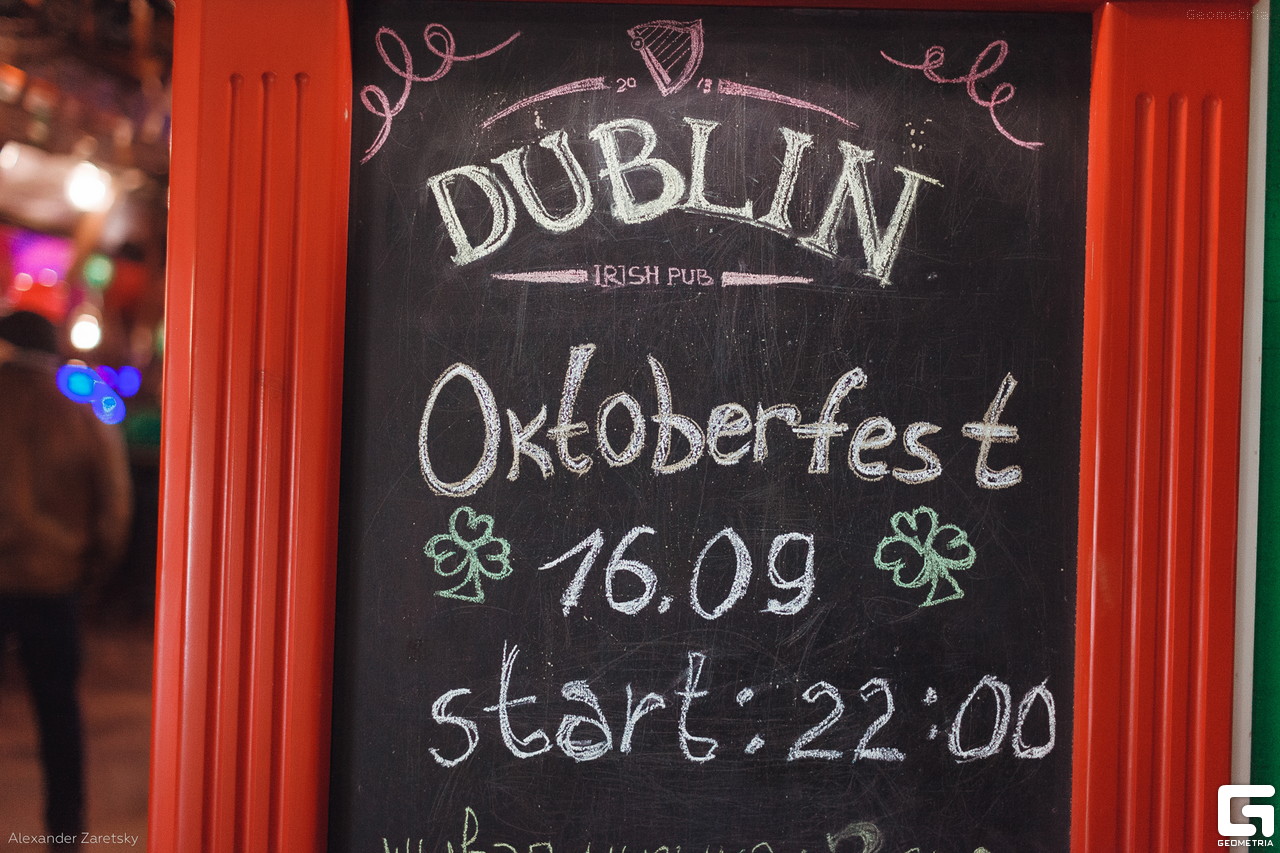 Geometria
20 13
DUBLIN
IRISH PUB
Oktoberfest
16.09
start: 22:00
Alexander Zaretsky
GEOMETRIA